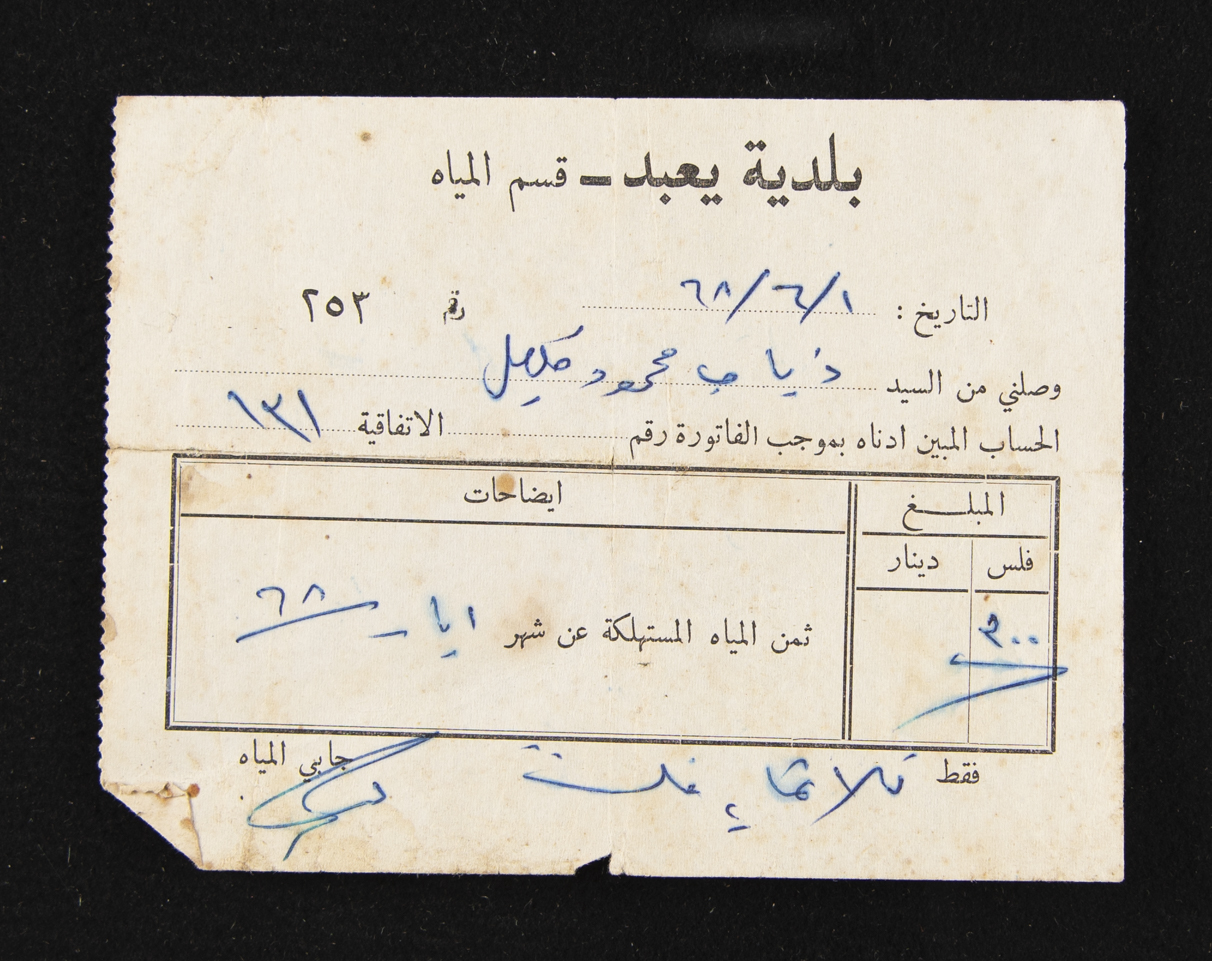 بلدية يعبد ـ قسم المياه
التاريخ : ١/٦/٦٨ رقم ٢٥٣
وصلني من السيد ذياب محمود
الحساب المبين ادناه بموجب الفاتورة رقم الاتفاقية ١٣١
المبلـــغ ايضاحات
فلس دينار
٣٠٠ ثمن المياه المستهلكة عن شهر ايار ٦٨
فقط ثلاثماية فلس
جابي المياه